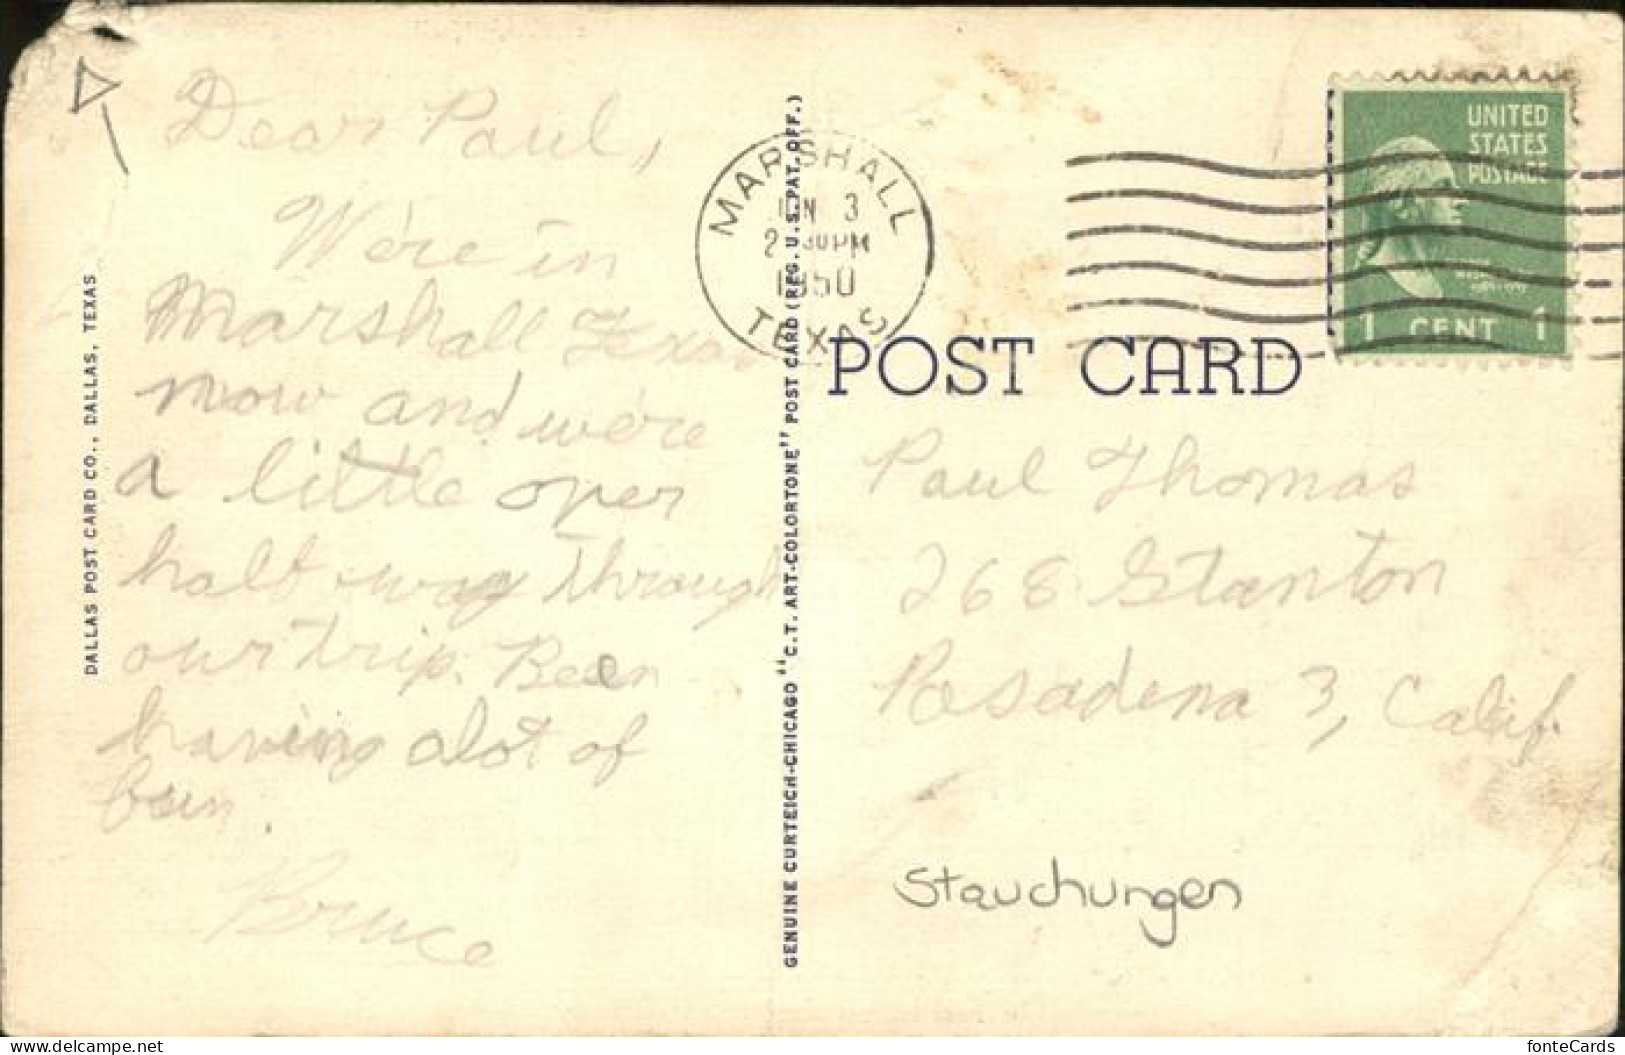 Dear Paul,
We're in
Marshall Texas
now and we're
a little over
half way through
our trip. Been
having alot of
fun.
Bruce
DALLAS POST CARD CO., DALLAS, TEXAS
GENUINE CURTEICH-CHICAGO "C.T. ART-COLORTONE" POST CARD (REG. U.S. PAT. OFF.)
MARSHALL
JUN 3
2 30 PM
1950
TEXAS
UNITED
STATES
POSTAGE
1 CENT 1
POST CARD
Paul Thomas
268 Stanton
Pasadena 3, Calif.
Stauchungen
delcampe.net
fonteCards